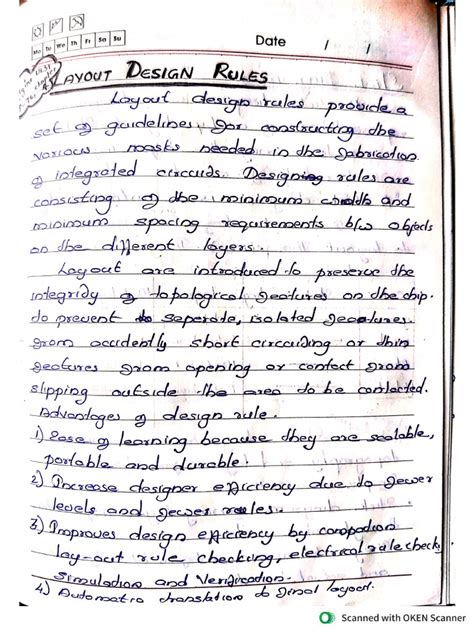 Mo Tu We Th Fr Sa Su
Date / /
LAYOUT DESIGN RULES
Layout design rules provide a
set of guidelines for constructing the
various masks needed in the fabrication
of integrated circuits. Designing rules are
consisting of the minimum width and
minimum spacing requirements b/w objects
on the different layers.
Layout are introduced to preserve the
integrity of topological features on the chip.
to prevent seperate, isolated features.
from accidently short circuiting or thin
features from opening or contact from
slipping outside the area to be contacted.
Advantages of design rule.
1) Ease of learning because they are scalable,
portable and durable.
2) Increase designer efficiency due to fewer
levels and fewer rules.
3) Improves design efficiency by
lay-out rule checking, electrical rule check,
Simulation and Verification.
4) Automatic translation to final layout.
Scanned with OKEN Scanner